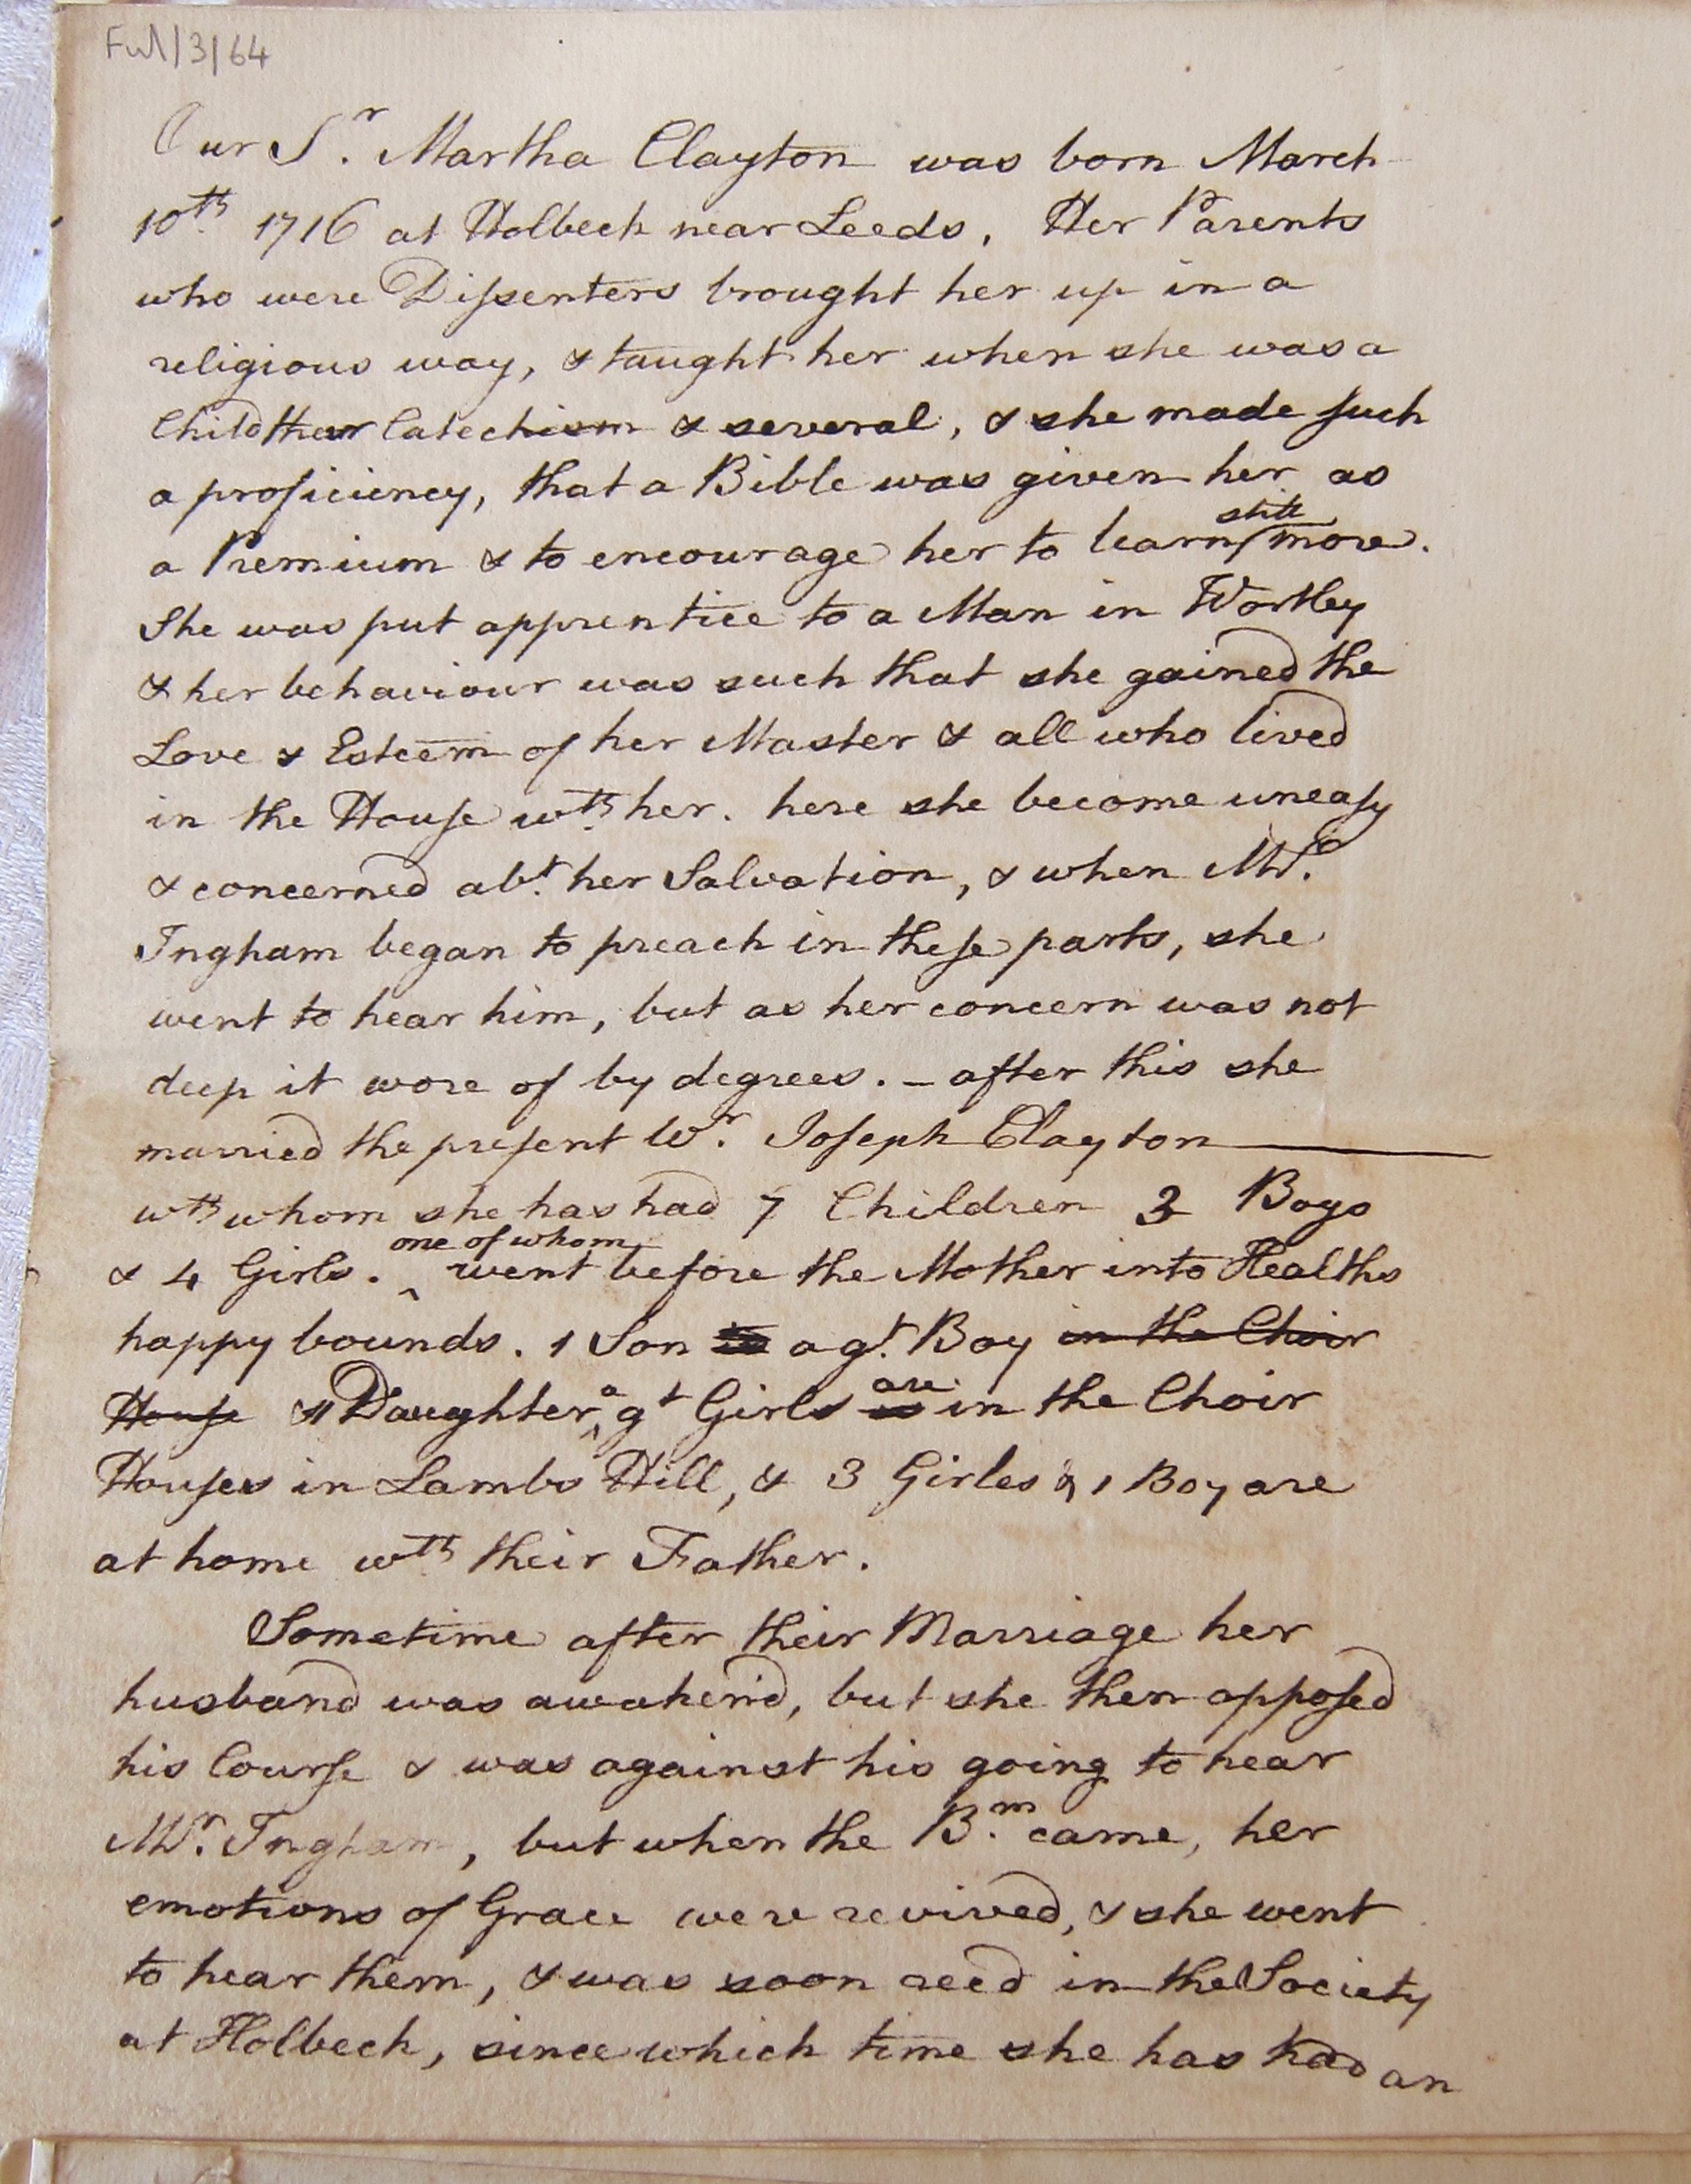 Ful/3/64
Our Sr. Martha Clayton was born March
10th. 1716 at Holbeck near Leeds. Her Parents
who were Dissenters brought her up in a
religious way, & taught her when she was a
Child their Catechism & several, & she made such
a proficiency, that a Bible was given her as
a Premium & to encourage her to learn still more.
She was put apprentice to a Man in Wortley
& her behaviour was such that she gained the
Love & Esteem of her Master & all who lived
in the House wth. her. here she become uneasy
& concerned abt. her Salvation, & when Mr.
Ingham began to preach in these parts, she
went to hear him, but as her concern was not
deep it wore of by degrees. – after this she
married the present Wr. Joseph Clayton
wth whom she has had 7 Children 3 Boys
& 4 Girls. one of whom went before the Mother into Healths
happy bounds. 1 Son is a gt. Boy in the Choir
House & 1 Daughter a gt Girls are in the Choir
Houses in Lambs Hill, & 3 Girles & 1 Boy are
at home wth. their Father.
Sometime after their Marriage her
husband was awaken'd, but she then opposed
his Course & was against his going to hear
Mr. Ingham, but when the Brn. came, her
emotions of Grace were revived, & she went
to hear them, & was soon recd in the Society
at Holbeck, since which time she has had an